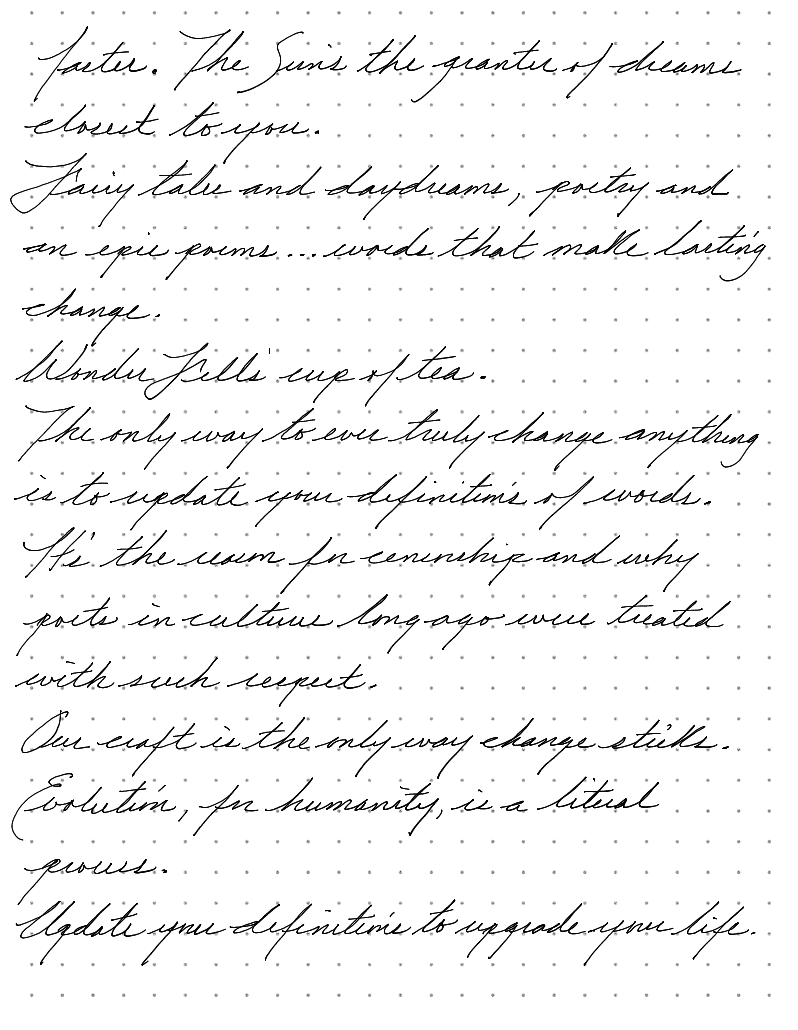 faster. The Sun's the granter of dreams
closest to you.
Fairy tales and daydreams, poetry and
an epic poems... words that make lasting
change.
Wonder Fell's cup of tea.
The only way to ever truly change anything
is to update your definitions of words.
It's the reason for censorship and why
poets in cultures long ago were treated
with such respect.
Our craft is the only way change sticks.
Evolution, for humanity, is a literal
process.
Update your definitions to upgrade your life.